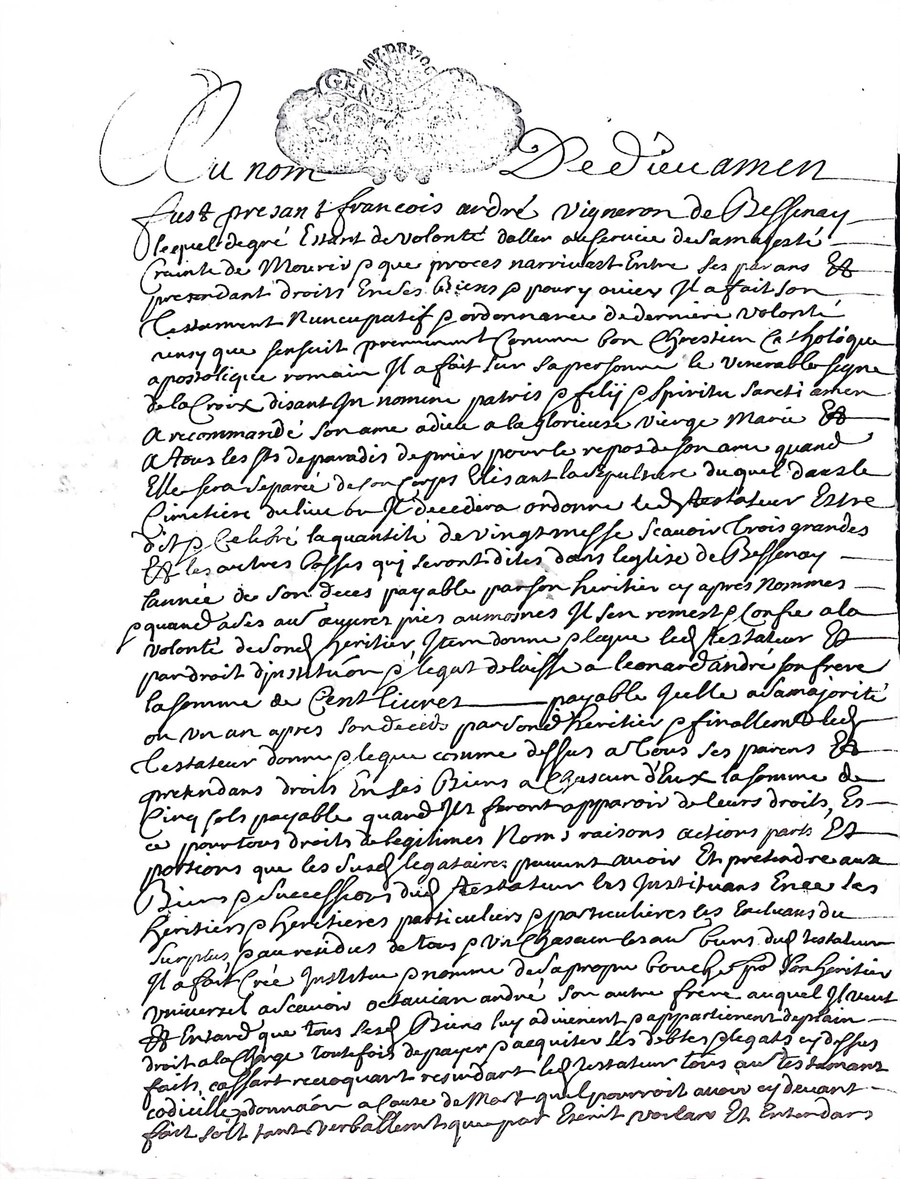 Au nom De dieu amen
fust presant françois andré vigneron de Bessenay
lequel degré Estant de volonté daller au service de sa majesté
Crainte de Mourir & que proces narrivast Entre ses parans Et
pretendant droits En ses Biens & pour y obvier Il a fait son
Testament Nuncupatif & ordonnance de derniere volonté
insy que sensuit premierement Comme bon Chrestien Catholique
apostolique romain Il a fait sur sa personne le venerable signe
de la Croix disant In nomine patris & filij & spiritu sancti amen
A recommandé son ame a dieu a la glorieuse vierge Marie Et
A tous les sts de paradis de prier pour le repos de son ame quand
Elle sera separee de son Corps Elisant la sepulture duquel dans le
Cimetière du lieu ou Il decedera ordonne led testateur Estre
dit & Celebré la quantité de vingt messe scavoir trois grandes
Et les autres basses quy seront dites dans leglise de Bessenay
lannée de son deces payable par son heritier cy après Nommes
& quand a ses aus œuvres pies aumosnes Il sen remest & Confie a la
volonté de sond heritier, Item donne & legue led testateur Et
par droit dinstitution & legat delaisse a leonard andré son frere
la somme de Cent livres payable a sa majorité
ou un an apres son decéds par sond heritier & finallemt led
testateur donne & legue comme dessus a tous ses parens Et
pretendans droits En ses Biens a Chascun d'Eux la somme de
Cinq sols payable quand Ils feront apparoir de leurs droits, Es
ce pour tous droits de legitimes Noms raisons actions parts Et
portions que les susd legataires peuvent avoir Et pretendre aux
Biens & succession dud testateur les Instituans En ce les
heritiers & heritieres particuliers & particulières les Excluans du
surplus & au residus de tous & un Chascun les aus biens dud testateur
Il a fait Créé Institué & nommé de sa propre bouche pr son heritier
universel a scavoir octavian andré son autre frère auquel Il veut
Et Entand que tous sesd Biens luy advienent & appartienent de plain
droit a la Charge toutefois de payer & acquiter les debtes & legats cy dessus
faits, cassant revoquant led testateur tous aus testamant
codicille & donnaon a Cause de Mort quil pourroit avoir cy devant
fait soit tant verballemt que par Escrit voulans Et Entendans